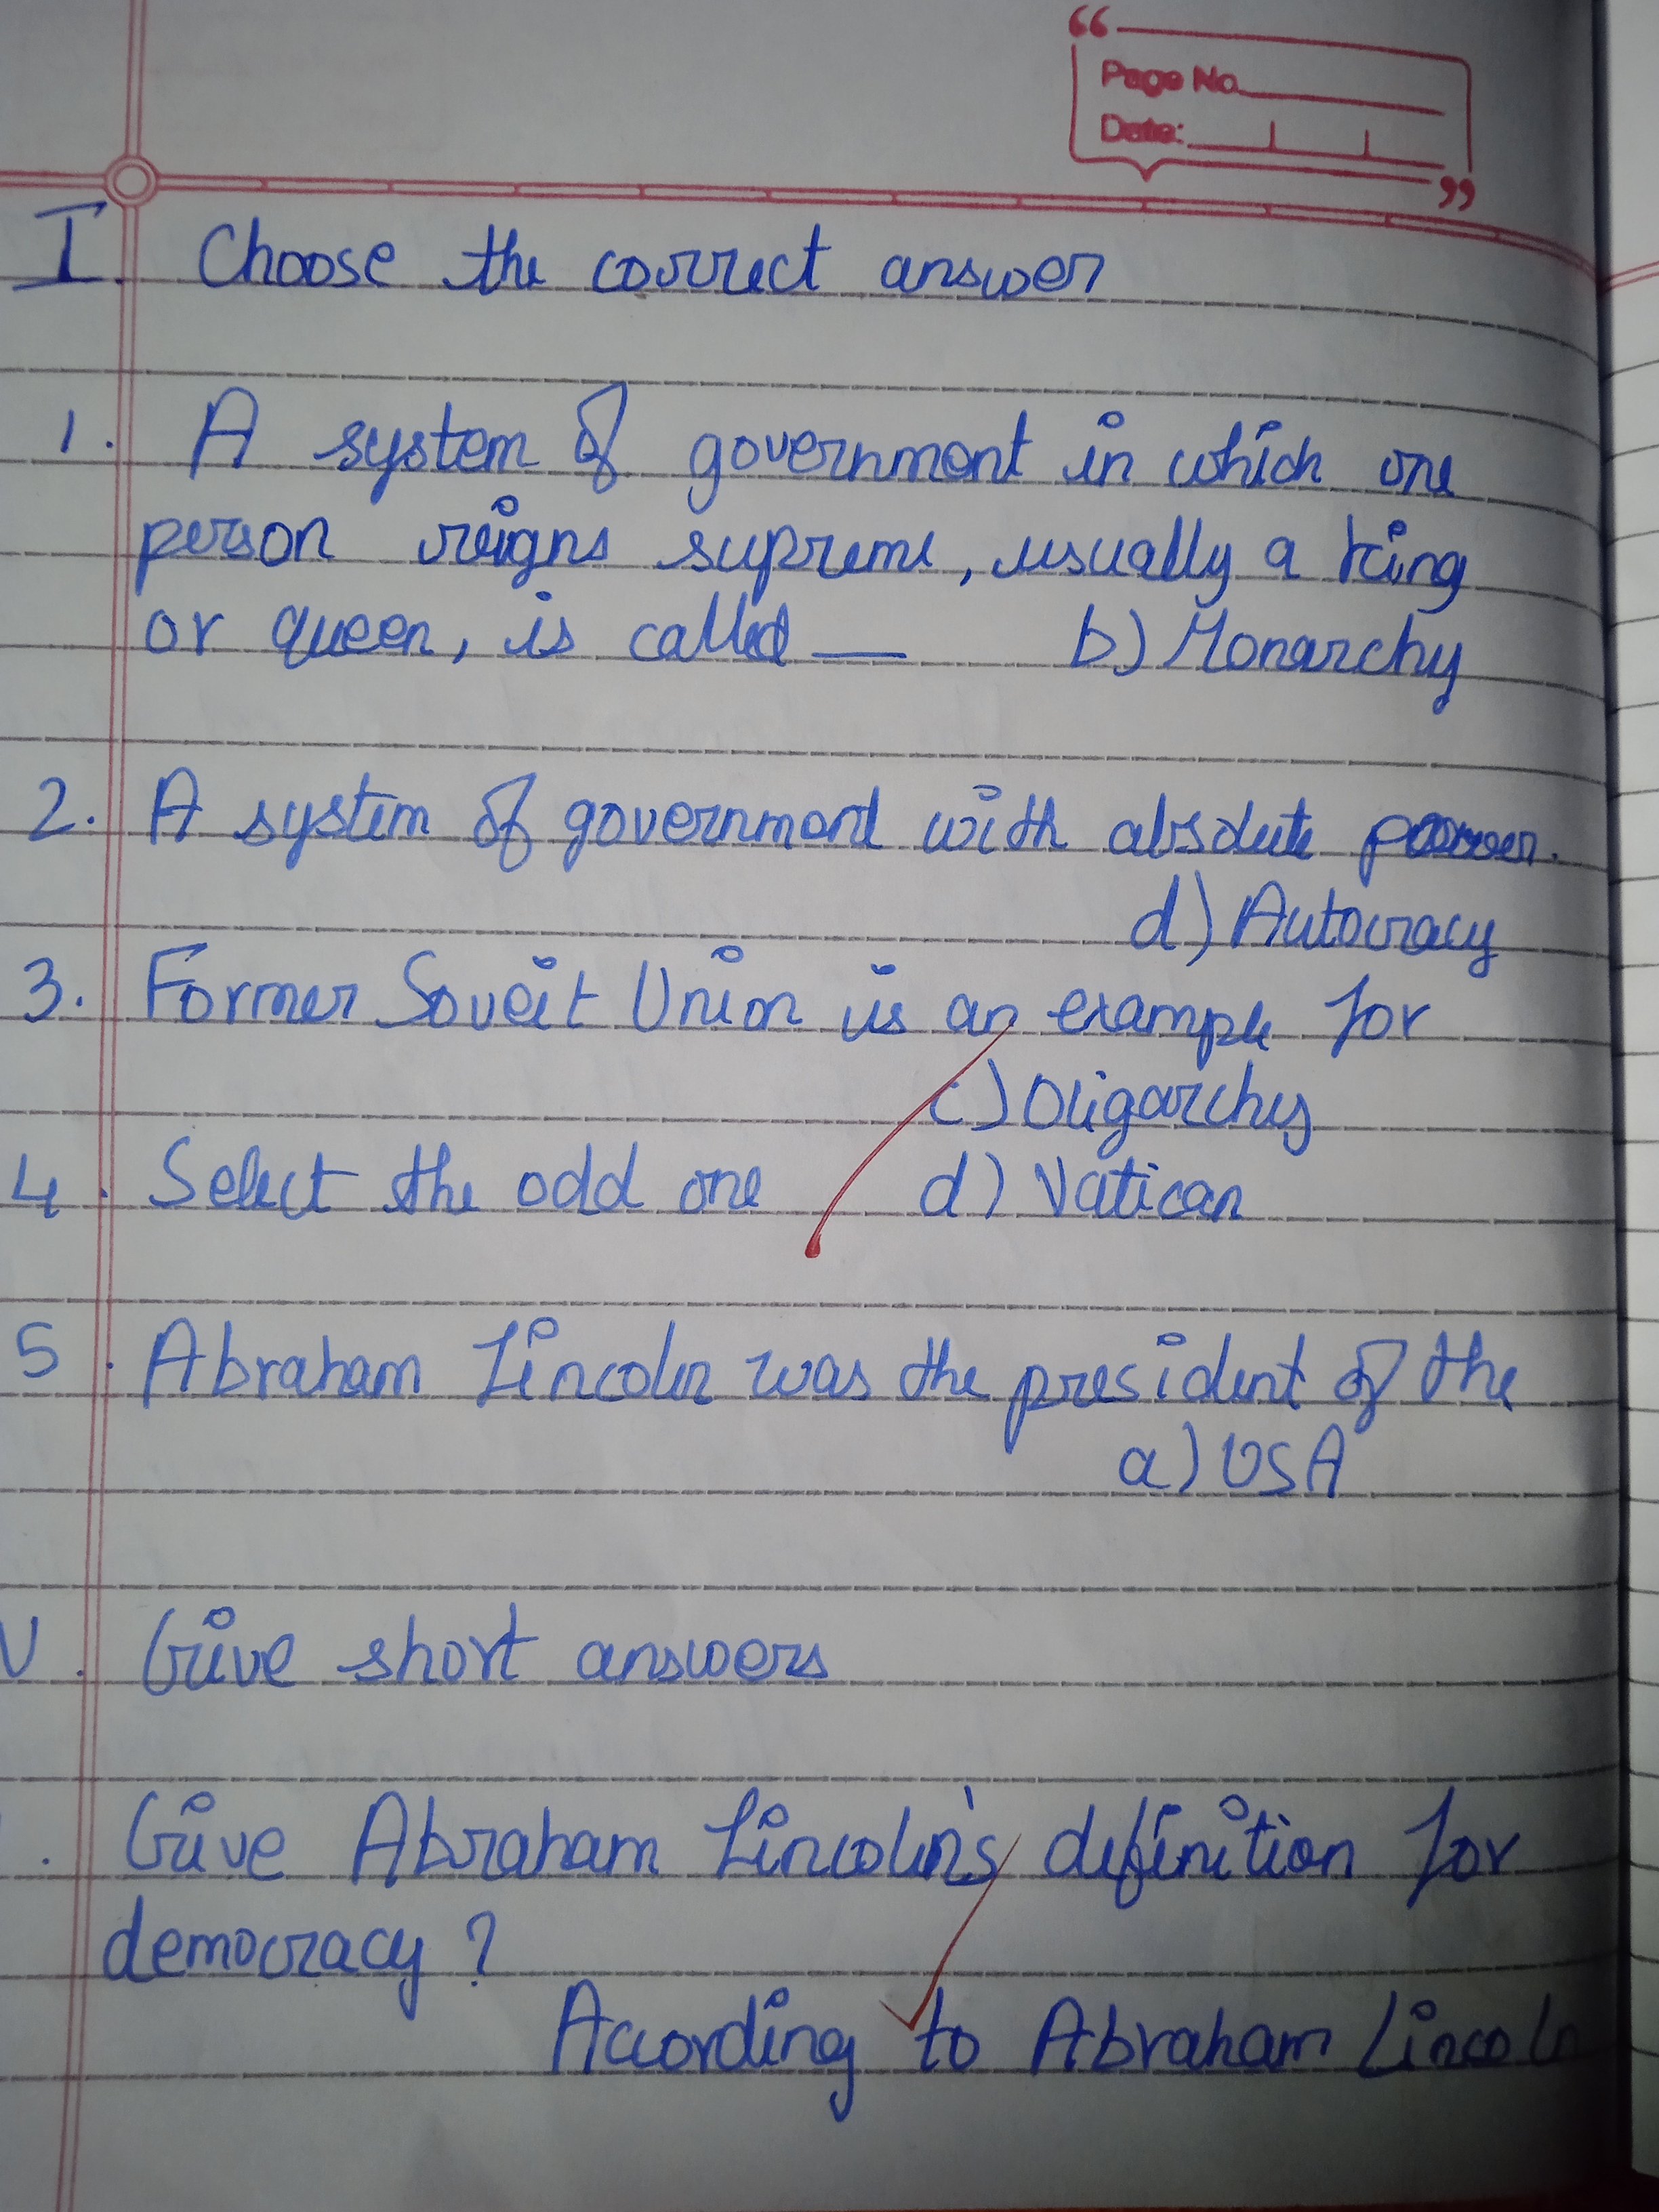 “
Page No.
Date:
”
I. Choose the correct answer
1. A system of government in which one
person reigns supreme, usually a king
or queen, is called — b) Monarchy
2. A system of government with absolute power.
d) Autocracy
3. Former Soveit Union is an example for
c) Oligarchy
4. Select the odd one d) Vatican
5. Abraham Lincoln was the president of the
a) USA
V. Give short answers
. Give Abraham Lincoln's definition for
democracy?
According to Abraham Lincoln